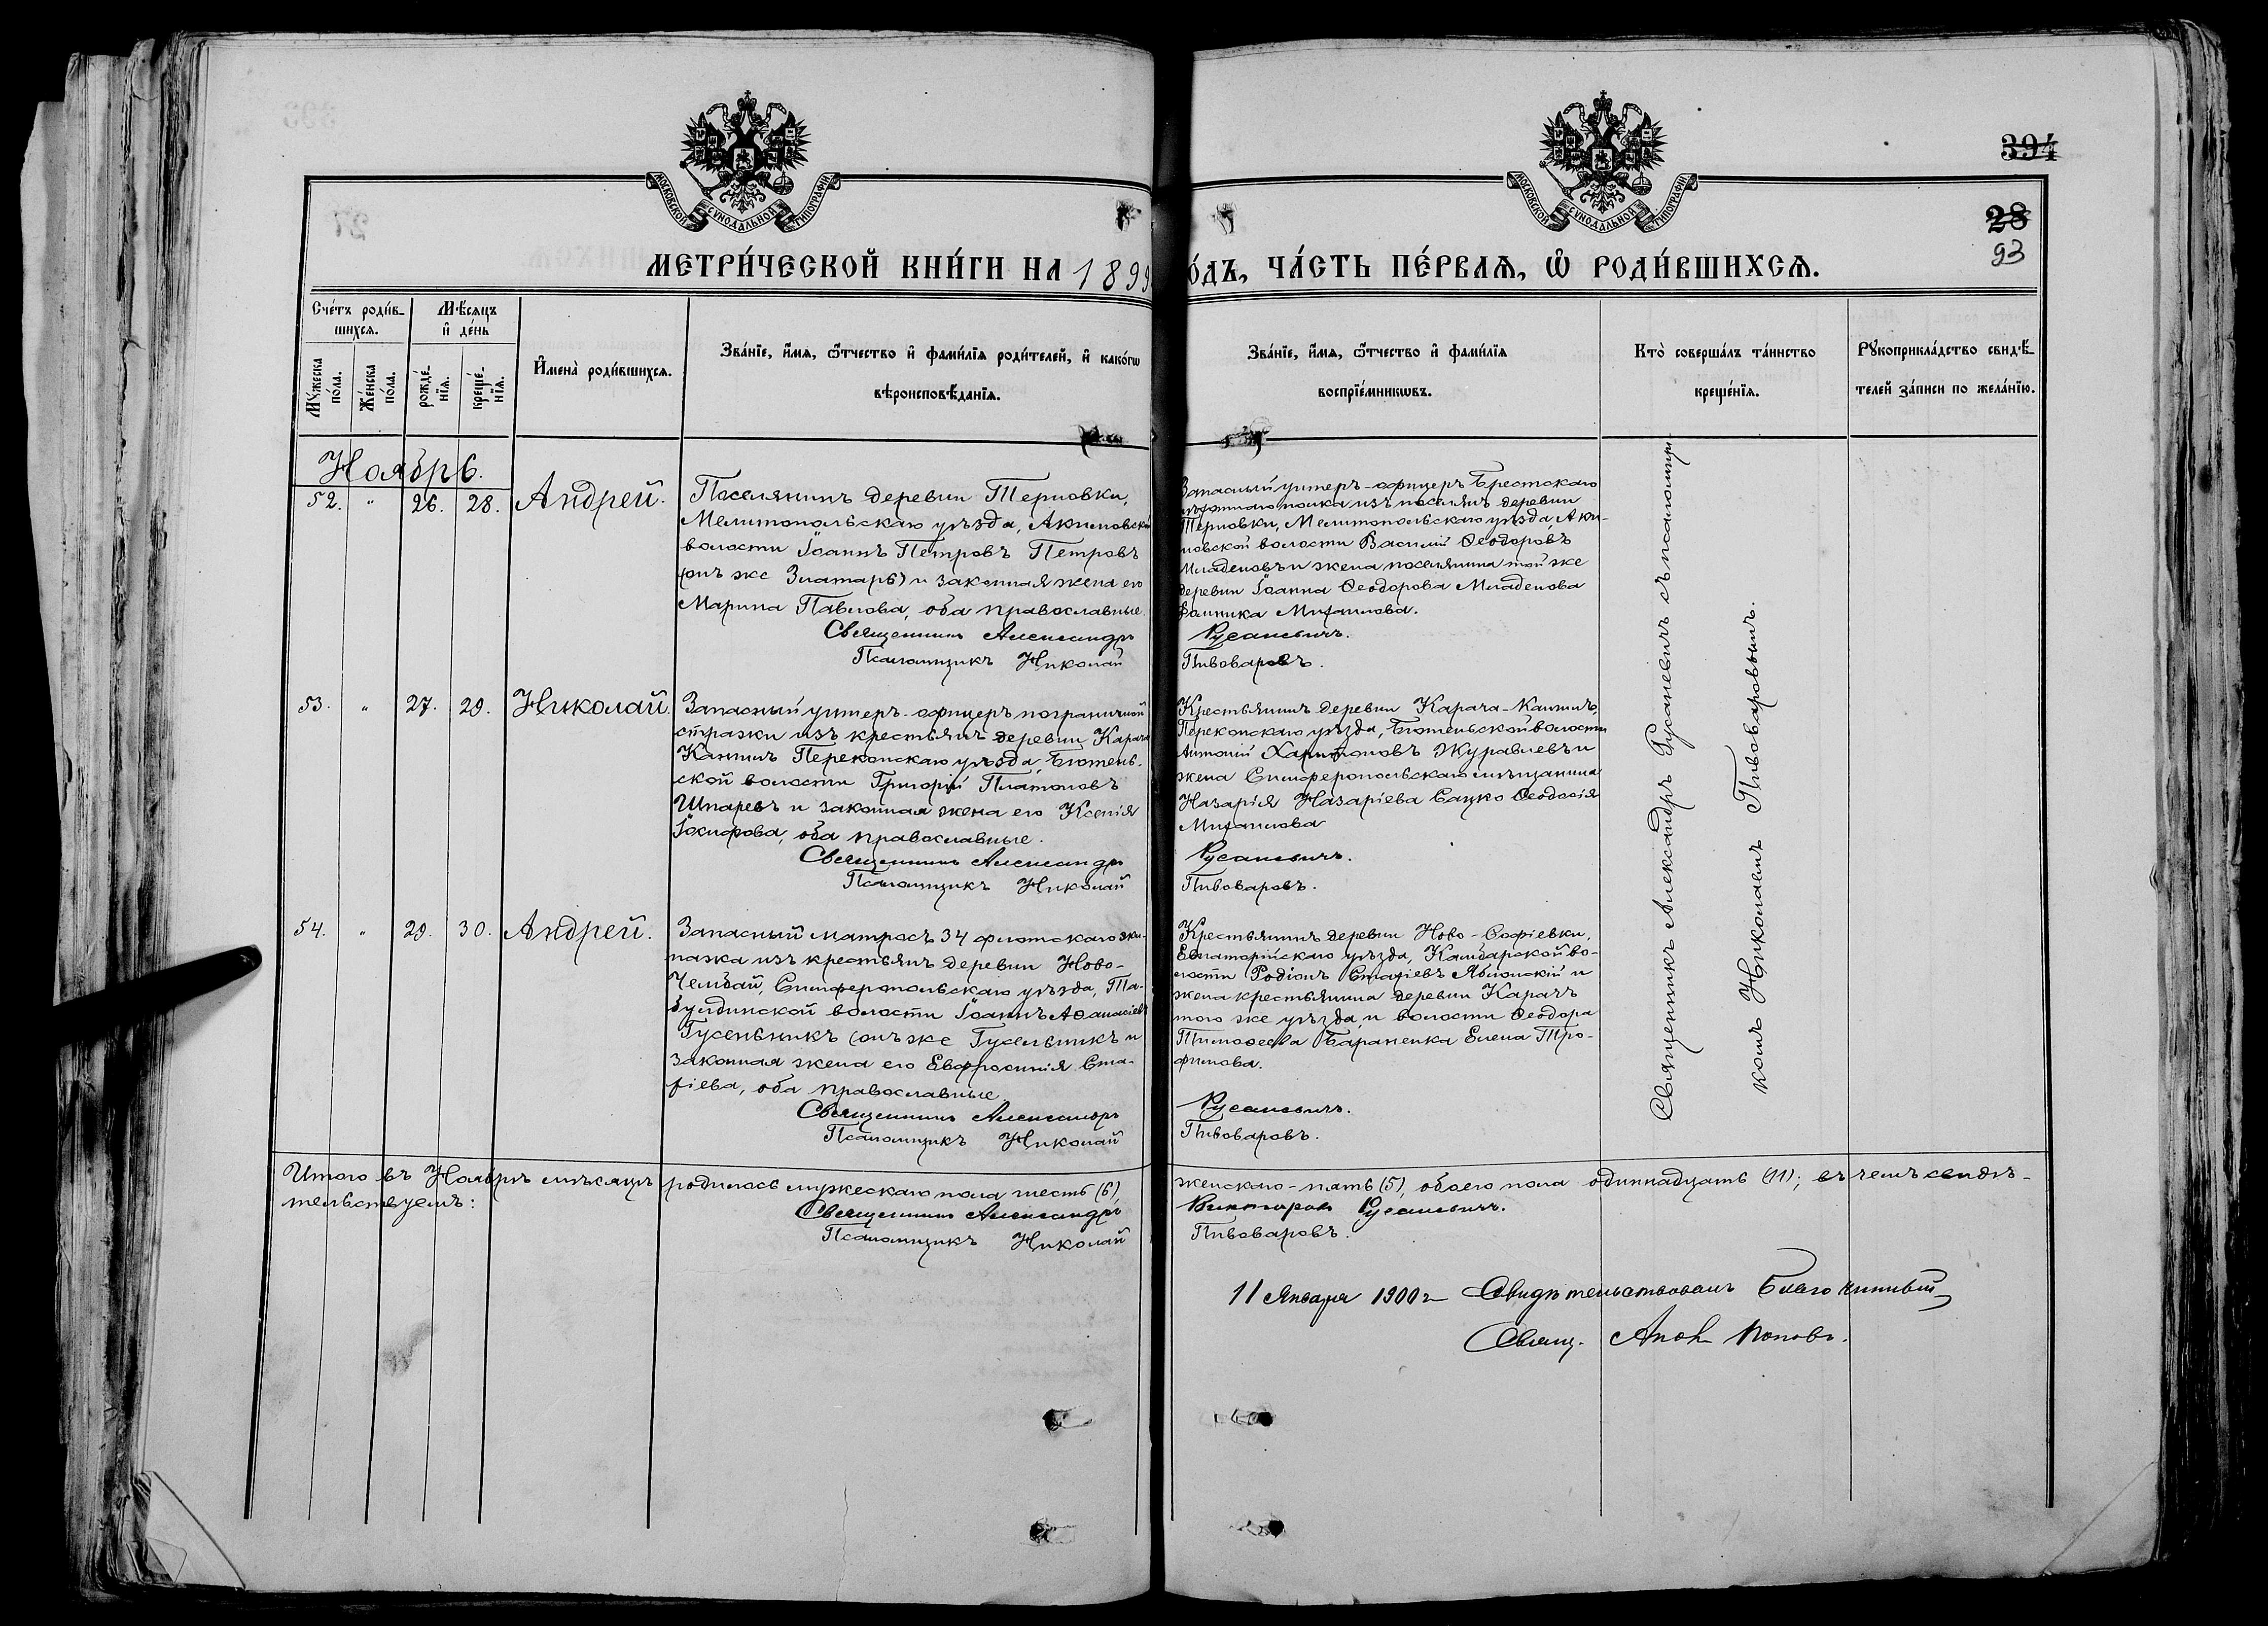 МОСКОВСКОЙ СУНОДАЛЬНОЙ ТИПОГРАФІИ
МОСКОВСКОЙ СУНОДАЛЬНОЙ ТИПОГРАФІИ
394
28
93
МЕТРИ́ЧЕСКОЙ КНИ́ГИ НА 1899
О́ДЪ, ЧА́СТЬ ПЕ́РВАѦ, Ѽ РОДИ́ВШИХСѦ.
Сче́тъ роди́в-
шихсѧ.
Мꙋ́жеска
по́ла.
Же́нска
по́ла.
Мѣ́сѧцъ
и҆ де́нь
рожде́-
нїѧ.
креще́-
нїѧ.
И҆мена̀ роди́вшихсѧ.
Зва́нїе, и҆́мѧ, ѻ҆́тчество и҆ фами́лїѧ роди́телей, и҆ како́гѡ
вѣроисповѣ́данїѧ.
Зва́нїе, и҆́мѧ, ѻ҆́тчество и҆ фами́лїѧ
воспрїе́мникѡвъ.
Кто̀ соверша́лъ та́инство
креще́нїѧ.
Рꙋкоприкла́дство свидѣ́-
телей за́писи по жела́нїю.
Ноябрь.
52. " 26. 28. Андрей.
Поселянинъ деревни Терновки,
Мелитопольскаго уѣзда, Акимовской
волости Іоаннъ Петровъ Петровъ
(онъ же Златарь) и законная жена его
Марина Павлова, оба православные.
Священникъ Александръ
Псаломщикъ Николай
Запасный унтеръ-офицеръ Брестскаго
пѣхотнаго полка изъ поселянъ деревни
Терновки, Мелитопольскаго уѣзда, Аки-
мовской волости Василій Ѳеодоровъ
Младеновъ и жена поселянина той же
деревни Іоанна Ѳеодорова Младенова
Домника Михаилова.
Русаневичъ.
Пивоваровъ.
53. " 27. 29. Николай.
Запасный унтеръ-офицеръ пограничной
стражи изъ крестьянъ деревни Карача-
Кангилъ Перекопскаго уѣзда, Бютень-
ской волости Григорій Платоновъ
Шпаревъ и законная жена его Ксенія
Іосифова, оба православные.
Священникъ Александръ
Псаломщикъ Николай
Крестьянинъ деревни Карача-Кангилъ,
Перекопскаго уѣзда, Бютеньской волости
Антоній Харитоновъ Журавлевъ и
жена Симферопольскаго мѣщанина
Назарія Назаріева Сацко Ѳеодосія
Михаилова
Русаневичъ.
Пивоваровъ.
54. " 29. 30. Андрей.
Запасный матросъ 34 флотскаго эки-
пажа изъ крестьянъ деревни Ново-
Челбай, Симферопольскаго уѣзда, Та-
булдинской волости Іоаннъ Аѳанасіевъ
Гусенвникъ (онъ же Гусельникъ и
законная жена его Евфросинія Ста-
фіева, оба православные.
Священникъ Александръ
Псаломщикъ Николай
Крестьянинъ деревни Ново-Софіевки,
Евпаторійскаго уѣзда, Камбарской во-
лости Родіонъ Стафіевъ Яблонскій и
жена крестьянина деревни Карачъ
того же уѣзда и волости Ѳеодора
Тимоѳеева Бараненка Елена Тро-
фимова.
Русаневичъ.
Пивоваровъ.
Священникъ Александръ Русаневичъ съ псаломщи-
комъ Николаемъ Пивоваровымъ.
Итого въ Ноябрѣ мѣсяцѣ родилось мужескаго пола шесть (6),
женскаго - пять (5), обоего пола одиннадцать (11); въ чемъ свидѣ-
тельствуемъ:
Священникъ Александръ
Викторовъ Русаневичъ.
Псаломщикъ Николай
Пивоваровъ.
11 Января 1900 г. Свидѣтельствовалъ Благочинный
Свящ. Попов.